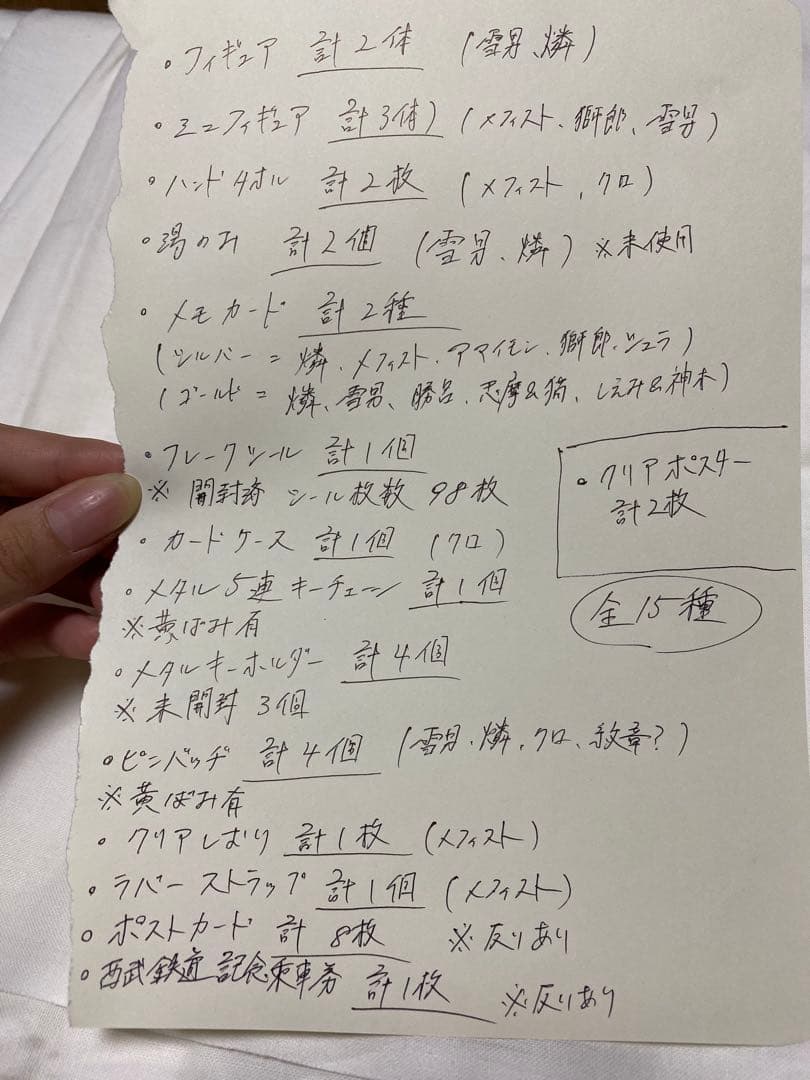 ・フィギュア 計2体 (雪男、燐)
・ミニフィギュア 計3体) (メフィスト、獅郎、雪男)
・ハンドタオル 計2枚 (メフィスト、クロ)
・湯のみ 計2個 (雪男、燐) ※未使用
・メモカード 計2種
(シルバー=燐、メフィスト、アマイモン、獅郎、シュラ)
(ゴールド=燐、雪男、勝呂、志摩&猫、しえみ&神木)
・フレークシール 計1個
※開封済 シール枚数 98枚
・カードケース 計1個 (クロ)
・メタル5連キーチェーン 計1個
※黄ばみ有
・メタルキーホルダー 計4個
※未開封3個
・ピンバッヂ 計4個 (雪男、燐、クロ、紋章?)
※黄ばみ有
・クリアしおり 計1枚 (メフィスト)
・ラバーストラップ 計1個 (メフィスト)
・ポストカード 計8枚 ※反りあり
・西武鉄道 記念乗車券 計1枚 ※反りあり
・クリアポスター
計2枚
全15種